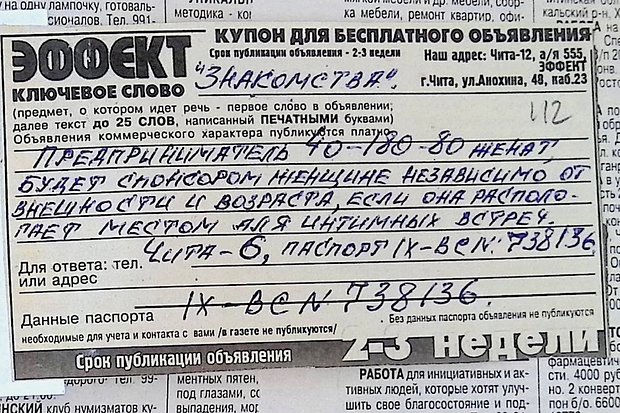 ЭФФЕКТ
КЛЮЧЕВОЕ СЛОВО
КУПОН ДЛЯ БЕСПЛАТНОГО ОБЪЯВЛЕНИЯ
Срок публикации объявления - 2-3 недели
Наш адрес: Чита-12, а/я 555,
ЭФФЕКТ
г.Чита, ул.Анохина, 48, каб.23
"ЗНАКОМСТВА".
(предмет, о котором идет речь - первое слово в объявлении;
далее текст до 25 СЛОВ, написанный ПЕЧАТНЫМИ буквами)
Объявления коммерческого характера публикуются платно
112
ПРЕДПРИНИМАТЕЛЬ 40-180-80 ЖЕНАТ,
БУДЕТ СПОНСОРОМ ЖЕНЩИНЕ НЕЗАВИСИМО ОТ
ВНЕШНОСТИ И ВОЗРАСТА, ЕСЛИ ОНА РАСПОЛО-
ГАЕТ МЕСТОМ ДЛЯ ИНТИМНЫХ ВСТРЕЧ.
ЧИТА-6, ПАСПОРТ IX-ВС N: 738136.
Для ответа: тел.
или адрес
IX-ВС N 738136.
Данные паспорта
Без данных паспорта объявления не публикуются
необходимые для учета и контакта с вами /в газете не публикуются/
Срок публикации объявления 2-3 недели
на одну лампочку, готоваль-
991-
методика - ко
мебели, ремонт квартир, офис
ИНСКИЙ клуб нумизматов
ментных пятен,
под глазами,
выпадения,
РАБОТА для инициативных и ак-
тивных людей, которые хотят улуч-
шить свое благосостояние и под
фармацевтичес-
сти. 4000 рубл
но. 2 конверт
б/о. 6600